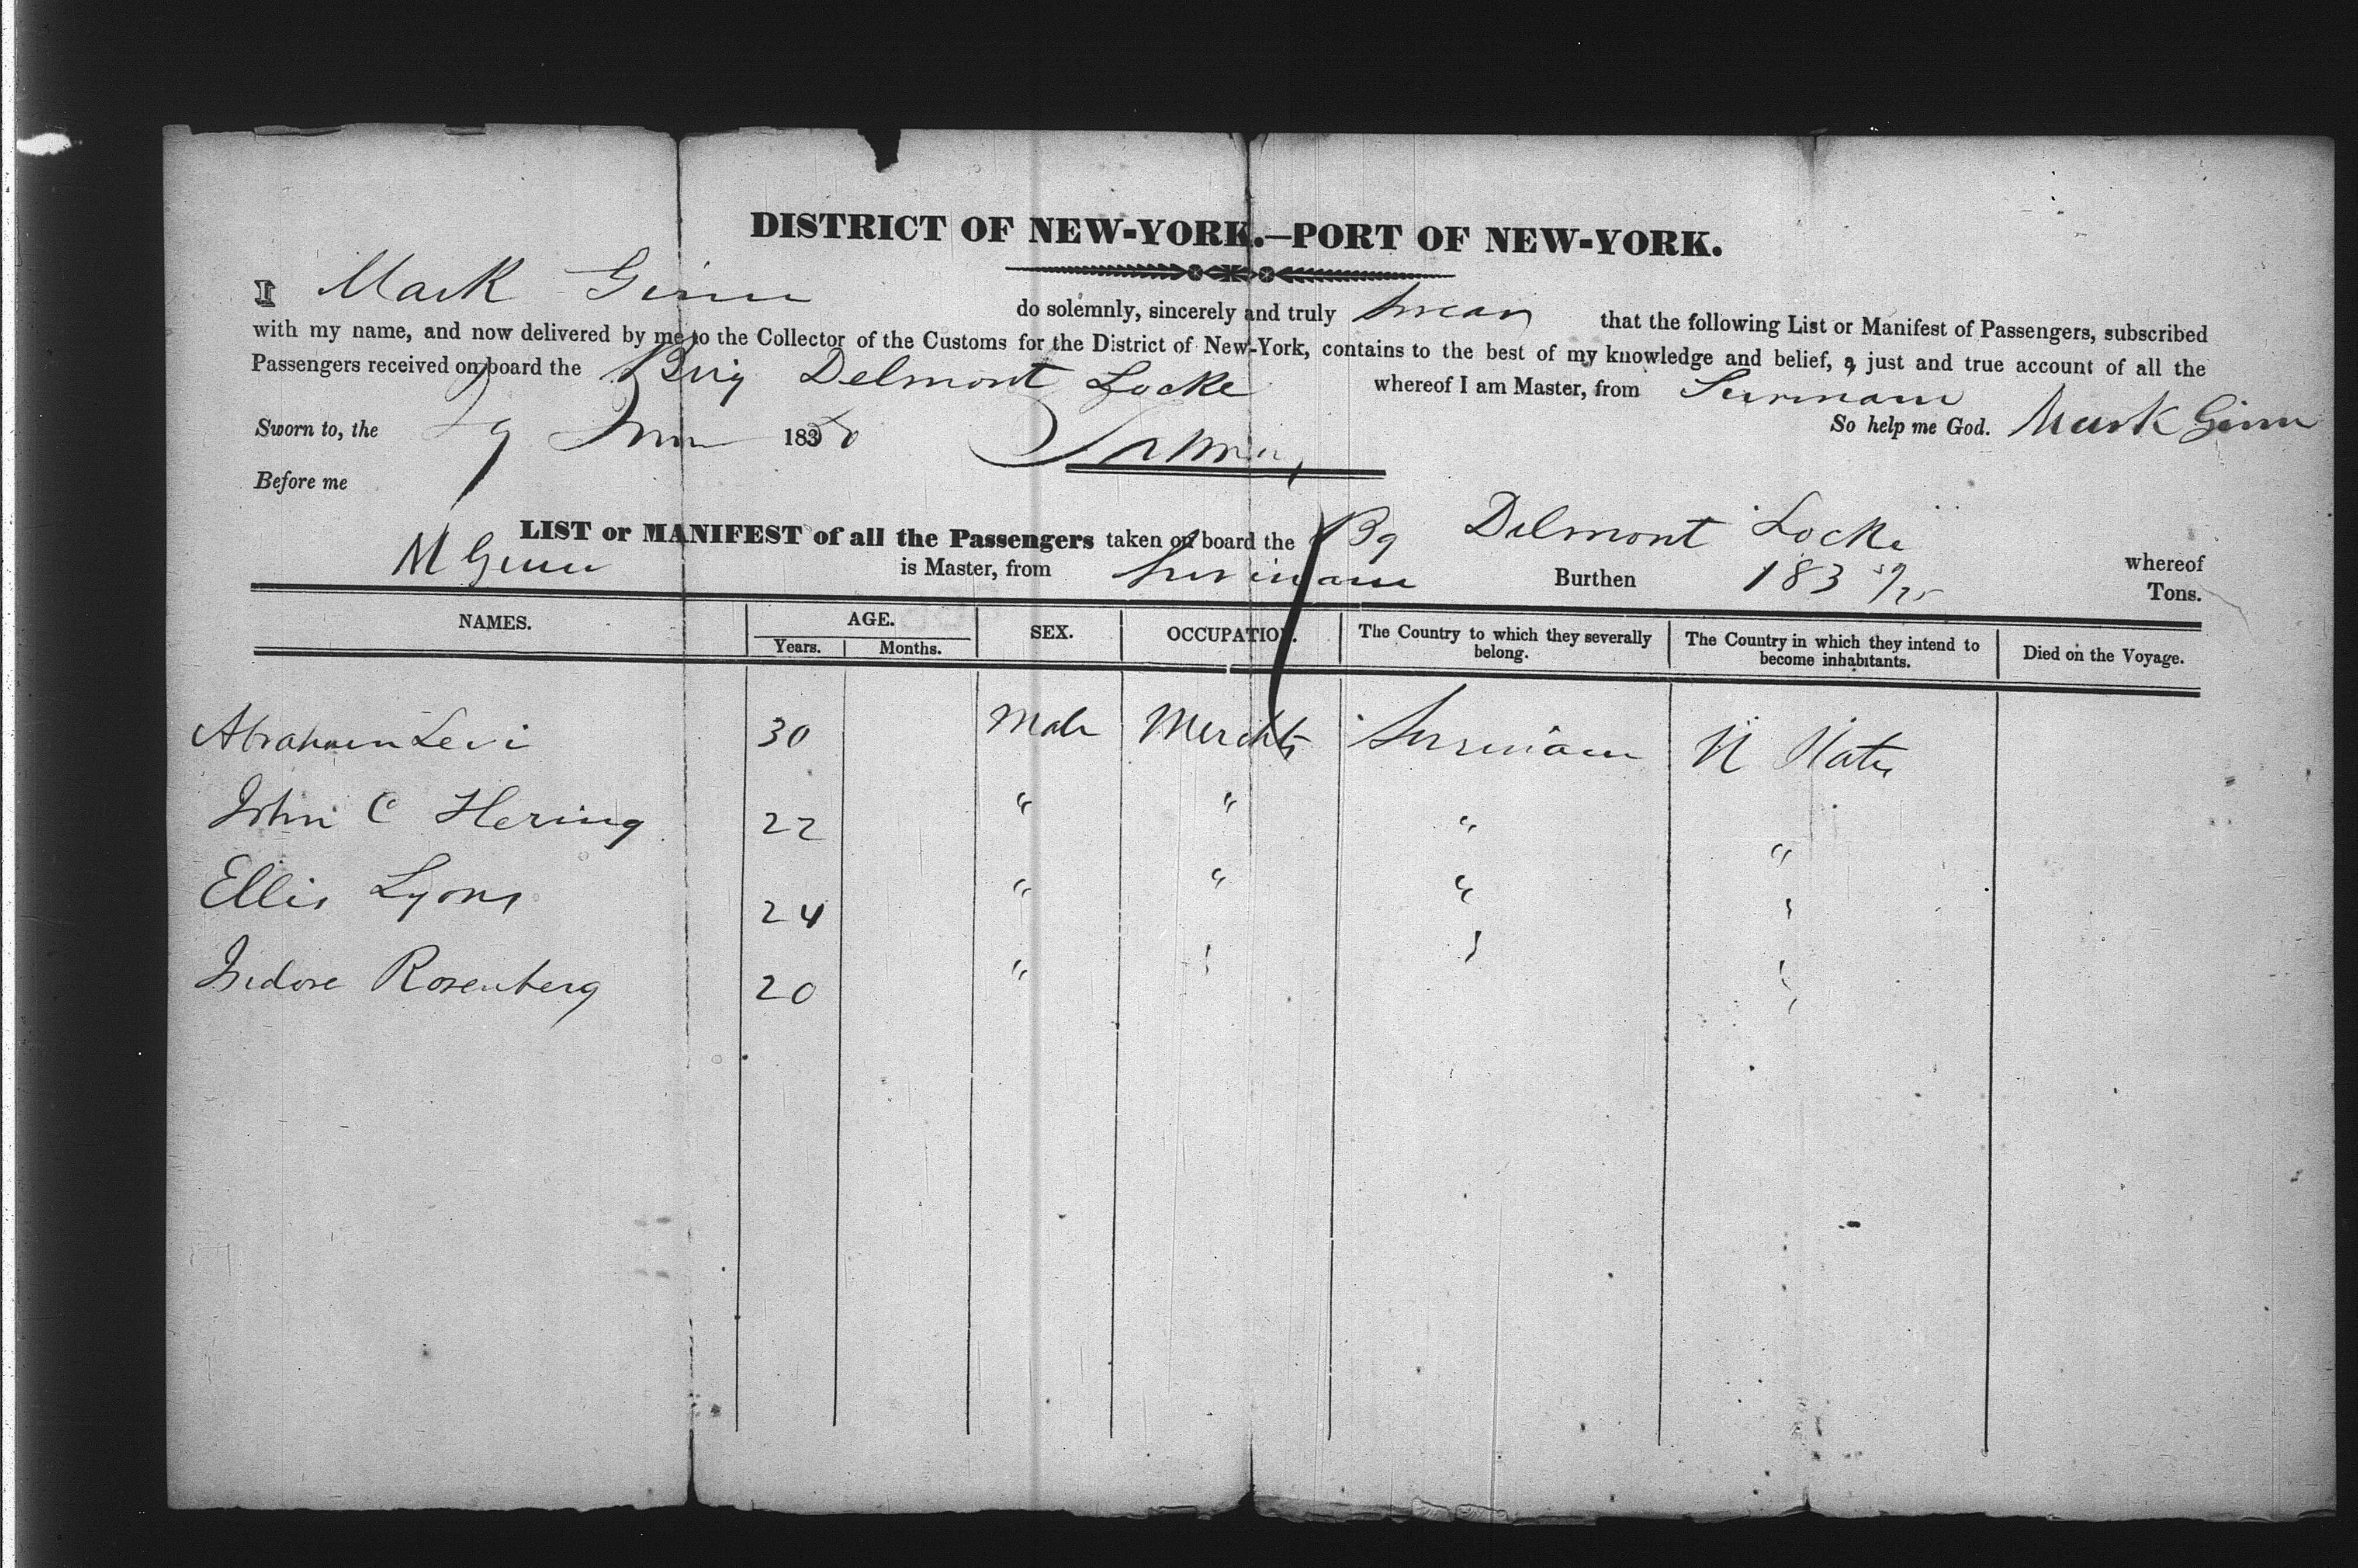 DISTRICT OF NEW-YORK.—PORT OF NEW-YORK.
I Mark Ginn do solemnly, sincerely and truly swear that the following List or Manifest of Passengers, subscribed
with my name, and now delivered by me to the Collector of the Customs for the District of New-York, contains to the best of my knowledge and belief, a just and true account of all the
Passengers received on board the Brig Delmont Locke whereof I am Master, from Surinam
Sworn to, the 9 183 So help me God. Mark Ginn
Before me
LIST or MANIFEST of all the Passengers taken on board the Bg Delmont Locke whereof
M Ginn is Master, from Surinam Burthen 183 Tons.
NAMES. AGE. SEX. OCCUPATION. The Country to which they severally belong. The Country in which they intend to become inhabitants. Died on the Voyage.
Years. Months.
Abraham Levi 30 Male Merchts Surinam U States
John C Hering 22 " " " "
Ellis Lyons 24 " " " "
Isidore Rosenberg 20 " " " "